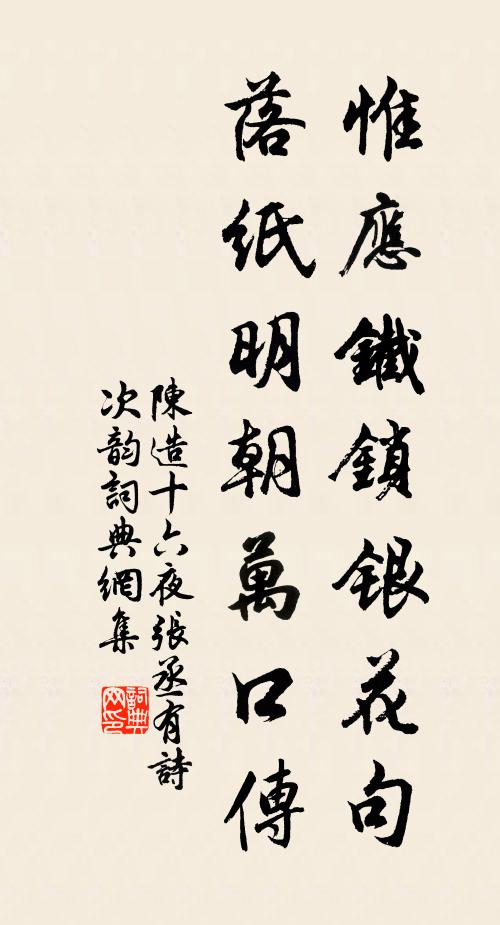 惟應鐵鎖銀花句
落紙明朝萬口傳
陳造十六夜張丞有詩
次韵詞典網集
詞典网印